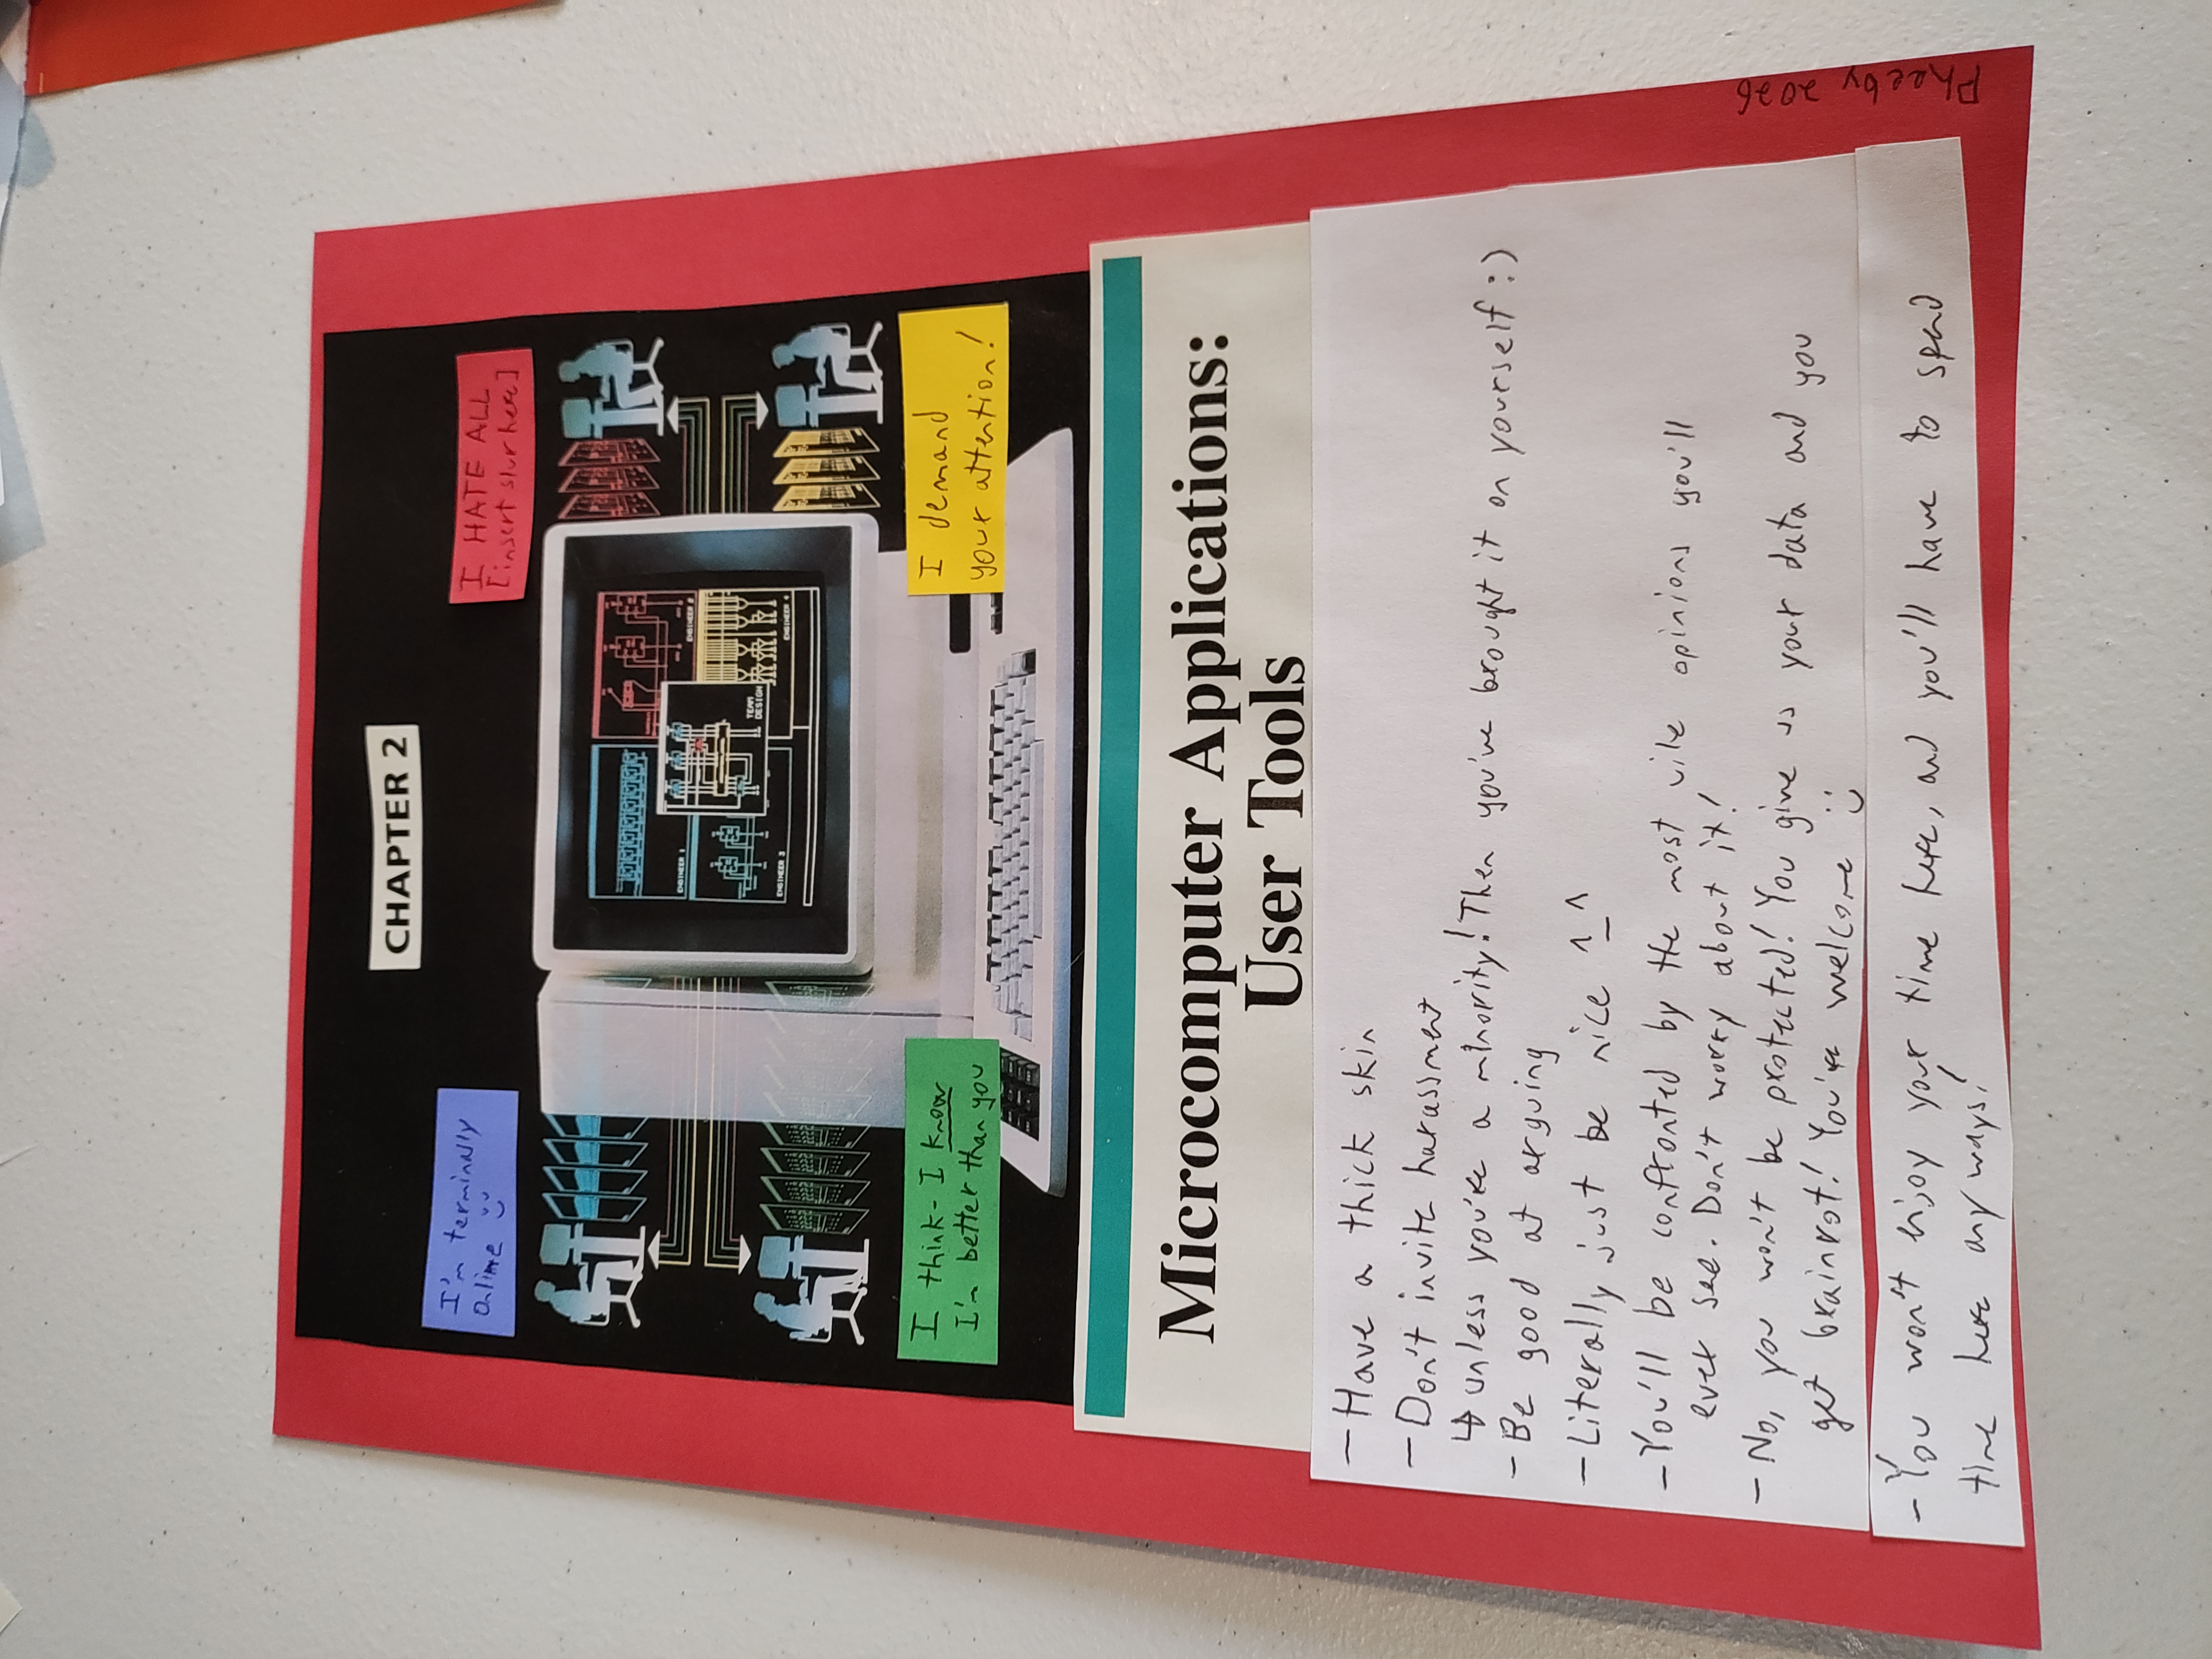 CHAPTER 2
I'm terminally
online
I HATE ALL
[insert slur here]
ENGINEER 1
ENGINEER 2
TEAM
DESIGN
ENGINEER 3
ENGINEER 4
I think - I know
I'm better than you
I demand
your attention!
Microcomputer Applications:
User Tools
- Have a thick skin
- Don't invite harassment
↳ unless you're a minority! Then you've brought it on yourself :)
- Be good at arguing
- Literally just be nice ^_^
- You'll be confronted by the most vile opinions you'll
ever see. Don't worry about it!
- No, you won't be protected! You give us your data and you
get brainrot! You're welcome :)
- You won't enjoy your time here, and you'll have to spend
time here anyways!
Pheeby 2026